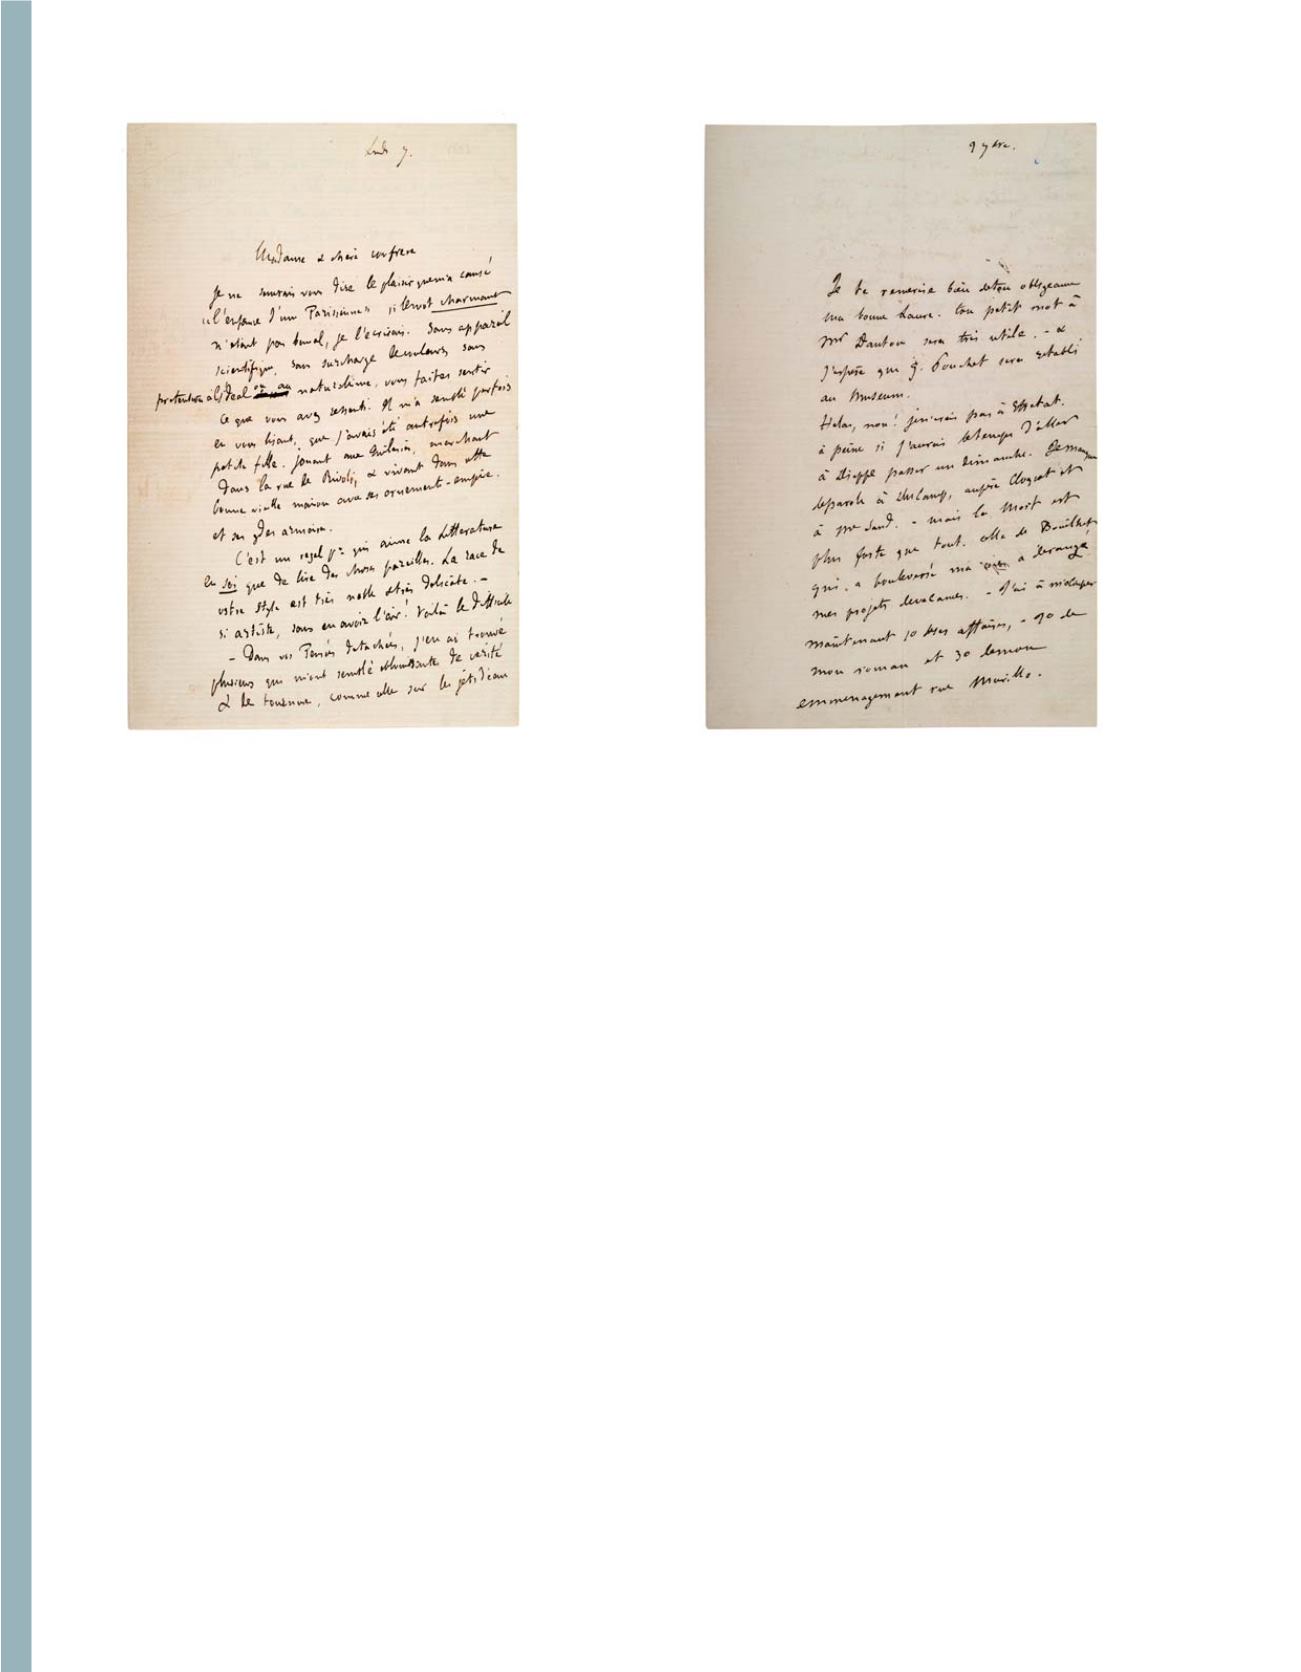 Lundi 7.
Madame & chère confrère
Je ne saurais vous dire le plaisir que m'a causé
« l'enfance d'une Parisienne » si le mot charmant
n'était pas banal, je l'écrirais. Sans appareil
scientifique, sans surcharge de couleurs sans
prétention à l'idéal ou au naturalisme, vous faites sentir
ce que vous avez ressenti. Il m'a semblé parfois
en vous lisant, que j'avais été autrefois une
petite fille. jouant aux Tuileries, marchant
dans la rue de Rivoli, & vivant dans cette
bonne vieille maison avec ses ornements-empire.
et ses gdes armoires.
C'est un régal pr qui aime la Littérature
en soi que de lire des choses pareilles. La race de
votre style est très noble et très délicate. –
si artiste, sans en avoir l'air! voilà le difficile
– Dans vos Pensées détachées, j'en ai trouvé
plusieurs qui m'ont semblé éblouissantes de vérité
& de tournure, comme celle sur les jets d'eau
9 7bre.
Je te remercie bien de ton obligeance
ma bonne Laure. ton petit mot à
Mr Danton sera très utile. – &
j'espère que G. Pouchet sera établi
au Muséum.
Hélas, non! je n'irai pas à Etretat.
à peine si j'aurai le temps d'aller
à Dieppe passer un dimanche. Je manque
de parole à Du Camp, au père Cloquet et
à me Sand. – mais la Mort est
plus forte que tout. celle de Bouilhet
qui a bouleversé ma vie a dérangé
mes projets de vacances. – J'ai à m'occuper
maintenant 1o de ses affaires, – 2o de
mon roman et 3o de mon
emménagement rue Murillo.